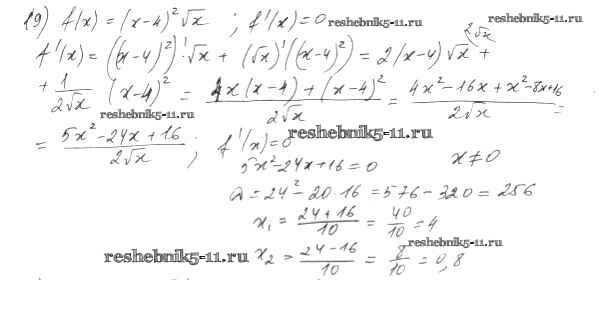 19) f(x) = (x-4)²√x ; f'(x) = 0 reshebnik5-11.ru reshebnik5-11.ru
f'(x) = ((x-4)²)'·√x + (√x)'((x-4)²) = 2(x-4)√x^{2√x} +
+ 1/(2√x) (x-4)² = (4x(x-4) + (x-4)²)/(2√x) = (4x²-16x+x²-8x+16)/(2√x) =
reshebnik5-11.ru
= (5x²-24x+16)/(2√x) ; f'(x)=0 reshebnik5-11.ru
5x²-24x+16=0 x≠0
D = 24²-20·16 = 576-320 = 256
x₁ = (24+16)/10 = 40/10 = 4
reshebnik5-11.ru
reshebnik5-11.ru x₂ = (24-16)/10 = 8/10 = 0,8